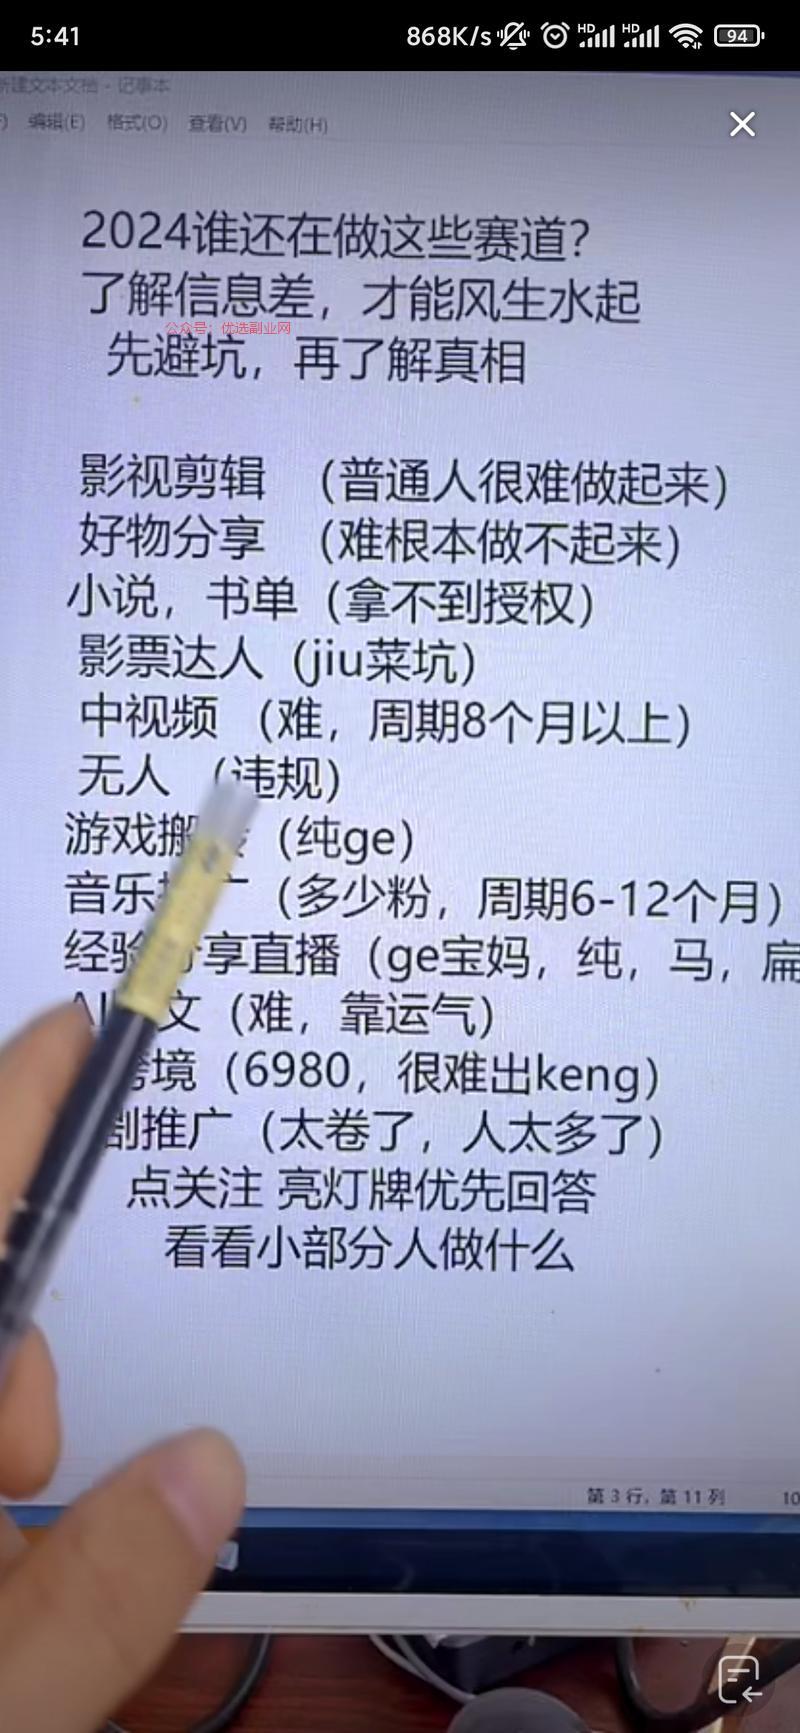 5:41
868K/s HD HD 94
新建文本文档 - 记事本
编辑(E) 格式(O) 查看(V) 帮助(H)
2024谁还在做这些赛道?
了解信息差，才能风生水起
公众号：优选副业网
先避坑，再了解真相
影视剪辑 （普通人很难做起来）
好物分享 （难根本做不起来）
小说，书单（拿不到授权）
影票达人（jiu菜坑）
中视频 （难，周期8个月以上）
无人 （违规）
游戏搬（纯ge）
音乐 （多少粉，周期6-12个月）
经验分享直播（ge宝妈，纯，马，扁
AI 文（难，靠运气）
境（6980，很难出keng）
剧推广（太卷了，人太多了）
点关注 亮灯牌优先回答
看看小部分人做什么
第 3 行，第 11 列 10